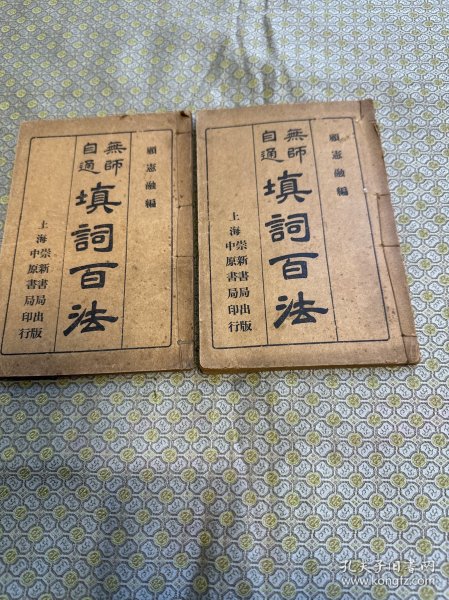 顧憲融編
無師
自通
填詞百法
上海崇新書局出版
中原書局印行
顧憲融編
無師
自通
填詞百法
上海崇新書局出版
中原書局印行
孔夫子旧书网
www.kongfz.com